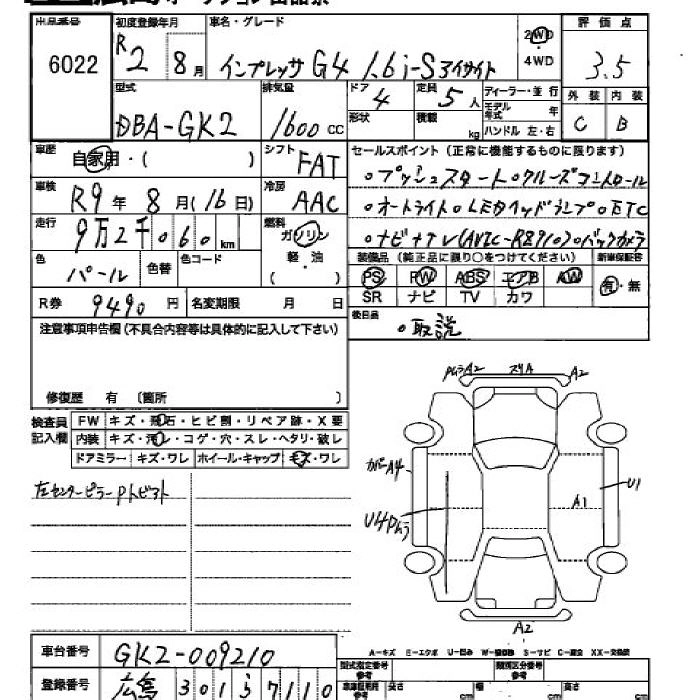 出品番号 初度登録年月 車名・グレード 評価点
6022 R2 8月 インプレッサ G4 1.6i-S アイサイト 2WD ・4WD 3.5
型式 排気量 ドア 4 定員 5人 ディーラー・並行 外装 内装
DBA-GK2 1600 cc 形状 積載 kg モデル年式 年 ハンドル 左・右 C B
車歴 自家用・( ) シフト FAT セールスポイント(正常に機能するものに限ります)
。プッシュスタート。クルーズコントロール
車検 R9年 8月(16日) 冷房 AAC 。オートライト。LEDヘッドランプ。ETC
走行 9万2千060km 燃料 ガソリン・軽・油 ( ) 。ナビ・テレ(AVIC-RZ910)。バックカメラ
色 パール 色替 色コード 装備品(純正品に限り〇をつけてください) 新車保証書
PS PW ABS エアB AW 有・無
R券 9490円 名変期限 月 日 SR ナビ TV カワ
注意事項申告欄(不具合内容等は具体的に記入して下さい) 後日品 。取説
修復歴 有 〔箇所 〕
検査員記入欄 FW キズ・飛石・ヒビ割・リペア跡・X要
内装 キズ・汚レ・コゲ・穴・スレ・ヘタリ・破レ
ドアミラー キズ・ワレ ホイール・キャップ キズ・ワレ
左センターピラーPトビアト
PムラA2 スリA A2
カバーA4 U1
U4Pムラ A1
A2
A-キズ E-エクボ U-凹み W-補修跡 S-サビ C-腐食 XX-交換済
車台番号 GK2-009210 型式指定番号 参考 類別区分番号 参考
登録番号 広島 301 5 7110 長さ cm 幅 cm 高さ cm